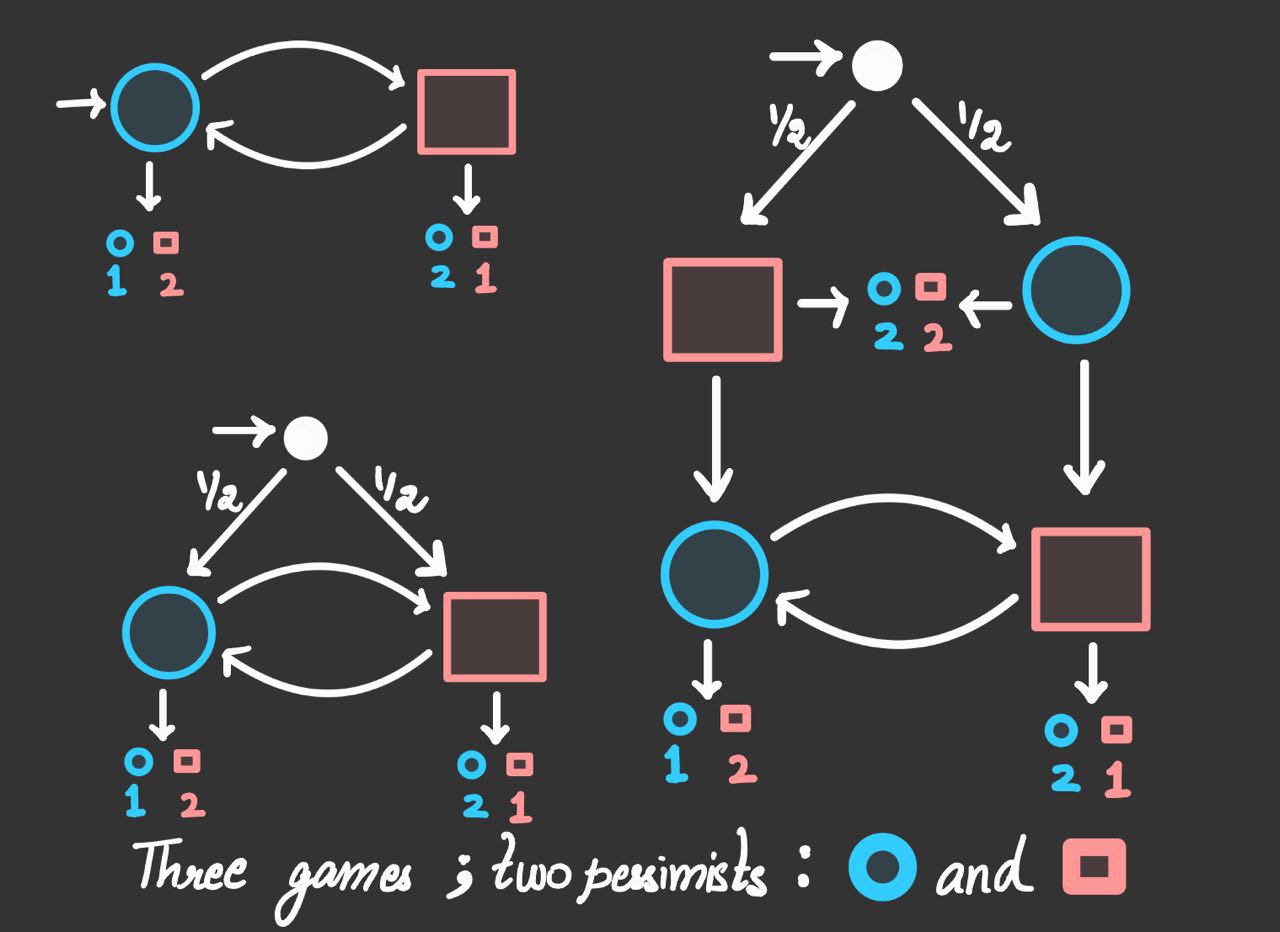 1/2 1/2
2 2
1 2 2 1
1/2 1/2
1 2 2 1
1 2 2 1
Three games ; two pessimists : and